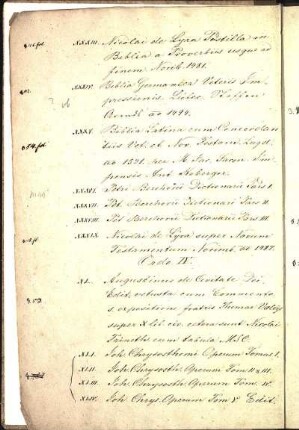 XXXIII. Nicolai de Lyra Postilla in
Biblia a Proverbiis usque ad
finem Norib. 1481.
XXXIV. Biblia Germanica Veteris Im-
pressionis
ao 1494.
XXXV. Biblia Latina cum Concordan
tiis Vet. et Nov. Testam. Lugd.
ao 1521. per M. Jac. Sacon Im-
pensis Ant. Koberger.
XXXVI. Petri Berchorii Dictionarii Pars I.
XXXVII. Pet. Berchorii Dictionarii Pars II.
XXXVIII. Pet. Berchorii Dictionarii Pars III.
XXXIX. Nicolai de Lyra super Novum
Testamentum Norimb. ao 1487.
Ordo IV.
XL. Augustinus de Civitate Dei
Edit. vetusta cum Commento
s. expositione fratris Thomae Valois
super X lib.
Triveth cum
XLI. Joh. Chrysosthomi Operum Tomus I.
XLII. Joh. Chrysosth. Operum Tom II & III.
XLIII. Joh. Chrysosth. Operum Tom. IV.
XLIV. Joh. Chrys. Operum Tom V Edit.